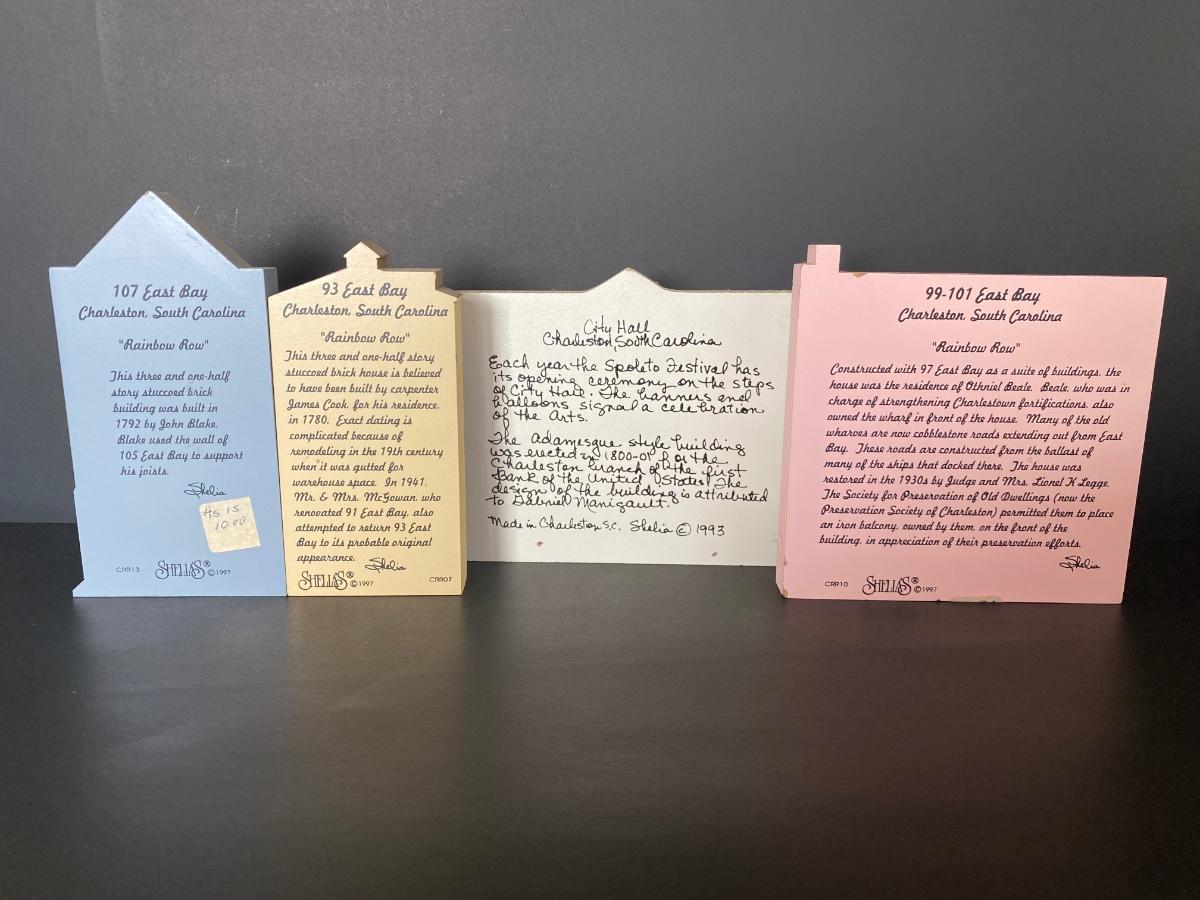 107 East Bay
Charleston, South Carolina
"Rainbow Row"
This three and one-half
story stuccoed brick
building was built in
1792 by John Blake.
Blake used the wall of
105 East Bay to support
his joists.
Shelia
AS IS
10.00
CRR13 SHELIA'S® ©1997
93 East Bay
Charleston, South Carolina
"Rainbow Row"
This three and one-half story
stuccoed brick house is believed
to have been built by carpenter
James Cook, for his residence,
in 1780. Exact dating is
complicated because of
remodeling in the 19th century
when it was gutted for
warehouse space. In 1941,
Mr. & Mrs. McGowan, who
renovated 91 East Bay, also
attempted to return 93 East
Bay to its probable original
appearance. Shelia
SHELIA'S® ©1997 CRR07
City Hall
Charleston, South Carolina
Each year the Spoleto Festival has
its opening ceremony on the steps
of City Hall. The banners and
balloons signal a celebration
of the Arts.
The Adamesque style building
was erected in 1800-01 for the
Charleston branch of the first
Bank of the United States. The
design of the building is attributed
to Gabriel Manigault.
Made in Charleston, S.C. Shelia © 1993
99-101 East Bay
Charleston, South Carolina
"Rainbow Row"
Constructed with 97 East Bay as a suite of buildings, the
house was the residence of Othniel Beale. Beale, who was in
charge of strengthening Charlestown fortifications, also
owned the wharf in front of the house. Many of the old
wharves are now cobblestone roads extending out from East
Bay. These roads are constructed from the ballast of
many of the ships that docked there. The house was
restored in the 1930s by Judge and Mrs. Lionel K Legge.
The Society for Preservation of Old Dwellings (now the
Preservation Society of Charleston) permitted them to place
an iron balcony, owned by them, on the front of the
building, in appreciation of their preservation efforts.
Shelia
CRR10 SHELIA'S® ©1997